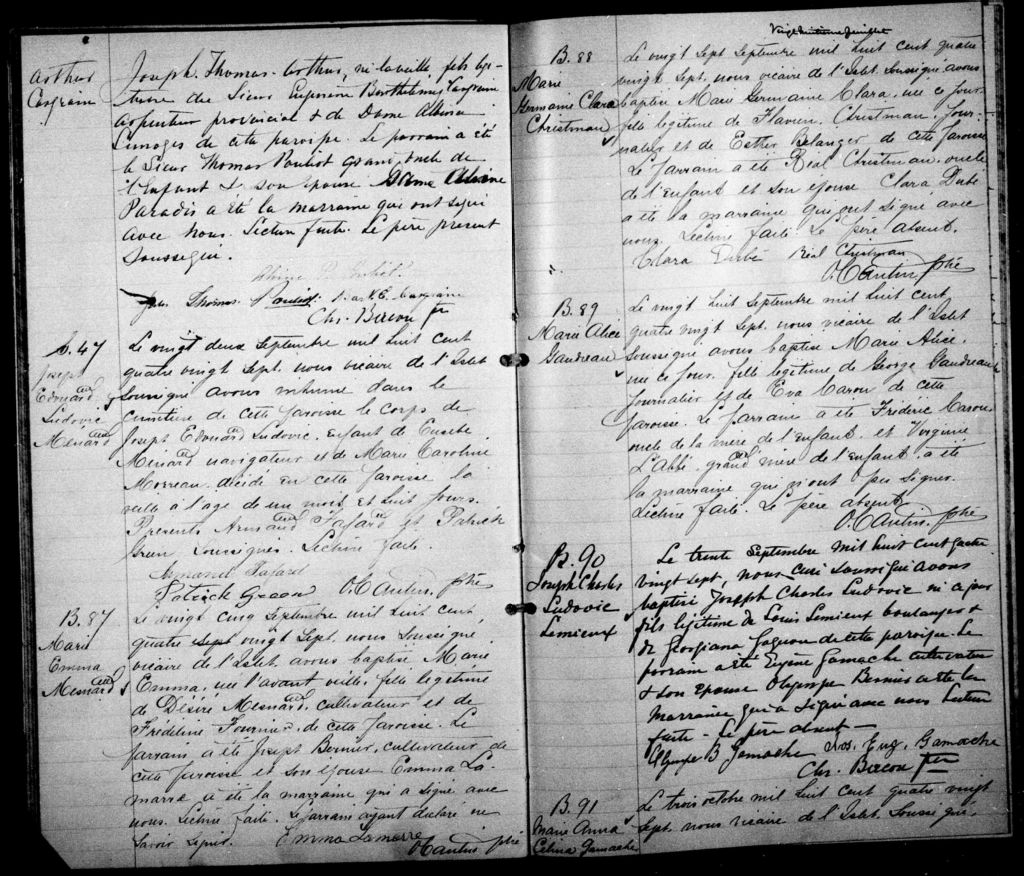 Arthur
Casgrain
Joseph Thomas Arthur, né la veille, fils lé-
time du Sieur Eugène Barthélemi Casgrain
Arpenteur provincial & de Dame Albina
Limoges de cette paroisse. Le parrain a été
le Sieur Thomas Pouliot grand oncle de
l'Enfant & son épouse Dame
Paradis a été la marraine qui ont signé
avec nous. Lecture faite. Le père present
soussigné.
Jph. Thomas Pouliot Casgrain
Chs. Bacon ptre
S. 47
Joseph
Edouard
Ludovic
Menard
Le vingt deux Septembre mil huit cent
quatre vingt Sept. nous vicaire de l'Islet
Soussigné avons inhumé dans le
cimetière de cette Paroisse le corps de
Joseph Edouard Ludovic. Enfant de Eusebe
Menard navigateur et de Marie Caroline
Moreau décidé en cette Paroisse la
veille à l'age de un mois et huit jours.
Presents Armand Pafard et Patrick
Green Soussignés. Lecture faite.
Armand Pafard
Patrick Green O. Cantin, ptre
B. 87
Marie
Emma
Mesnard
Le vingt cinq Septembre mil huit cent
quatre Sept vingt Sept. nous Soussigné
vicaire de l'Islet avons baptisé Marie
Emma, née l'avant veille, fille legitime
de Désiré Mesnard cultivateur et de
Frédeline Fournier de cette Paroisse. Le
Parrain a été Joseph Bernier, cultivateur de
cette Paroisse et son épouse Emma La
marre a été la marraine qui a signé avec
nous. Lecture faite. Le Parrain ayant declaré ne
Savoir signer. Emma Lamarre
O. Cantin ptre
Vingt huitième feuillet
B. 88
Marie
Germaine Clara
Christman
Le vingt Sept Septembre mil huit cent quatre
vingt Sept. nous vicaire de l'Islet Soussigné avons
baptisé Marie Germaine Clara, née ce jour
fille legitime de Flavien Christman, Jour-
nalier et de Esther Belanger de cette Paroisse
Le Parrain a été Réal Christman oncle
de l'enfant et son épouse Clara Dubé
a été la marraine qui ont signé avec
nous. Lecture faite le père absent.
Clara Dubé Réal Christman
O. Cantin ptre
B. 89
Marie Alice
Gaudreau
Le vingt huit Septembre mil huit cent
quatre vingt Sept. nous vicaire de l'Islet
Soussigné avons baptisé Marie Alice.
née ce jour, fille legitime de George Gaudreau
Journalier & de Eva Caron de cette
Paroisse. Le Parrain a été Frédéric Caron
oncle de la mère de l'Enfant et Virginie
L'Abbé grand mère de l'enfant a été
la marraine qui n'ont pu signer.
Lecture faite. Le père absent
O. Cantin, ptre
B. 90
Joseph Charles
Ludovic
Lemieux
Le trente Septembre mil huit cent quatre
vingt Sept, nous curé soussigné avons
baptisé Joseph Charles Ludovic né ce jour
fils légitime de Louis Lemieux boulanger &
de Georgiana Gagnon de cette paroisse. Le
parrain a été Eugène Gamache cultivateur
& son épouse Olympe Bernier a été la
marraine qui a signé avec nous Lecture
faite - Le père absent -
Olympe B Gamache Jos. Eug. Gamache
Chs. Bacon ptre
B. 91
Marie Anna
Célina Gamache
Le trois octobre mil huit cent quatre vingt
Sept. nous vicaire de l'Islet Soussigné.